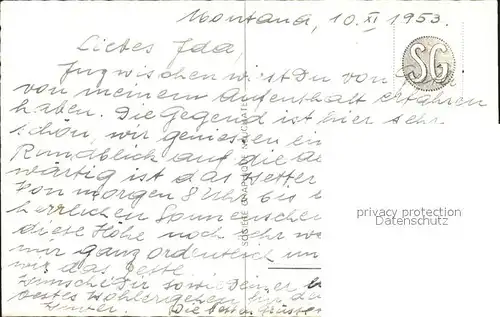 Montana, 10.XI 1953.
SG
Liebes Ida,
Inzwischen wirst Du von
von meinem Aufenthalt erfahren
haben. Die Gegend ist hier sehr
schön, wir geniessen ein
Rundblick auf die
wärtig ist das Wetter
von morgen 8 Uhr bis
herrlichen Sonnenschei
diese Höhe noch sehr
mir ganz ordentlich un
wir das beste
Wünsche Dir sowie Deiner
bestes Wohlergehen für
Die besten Grüsse
SOCIÉTÉ GRAPHIQUE NEUCHATEL
privacy protection
Datenschutz